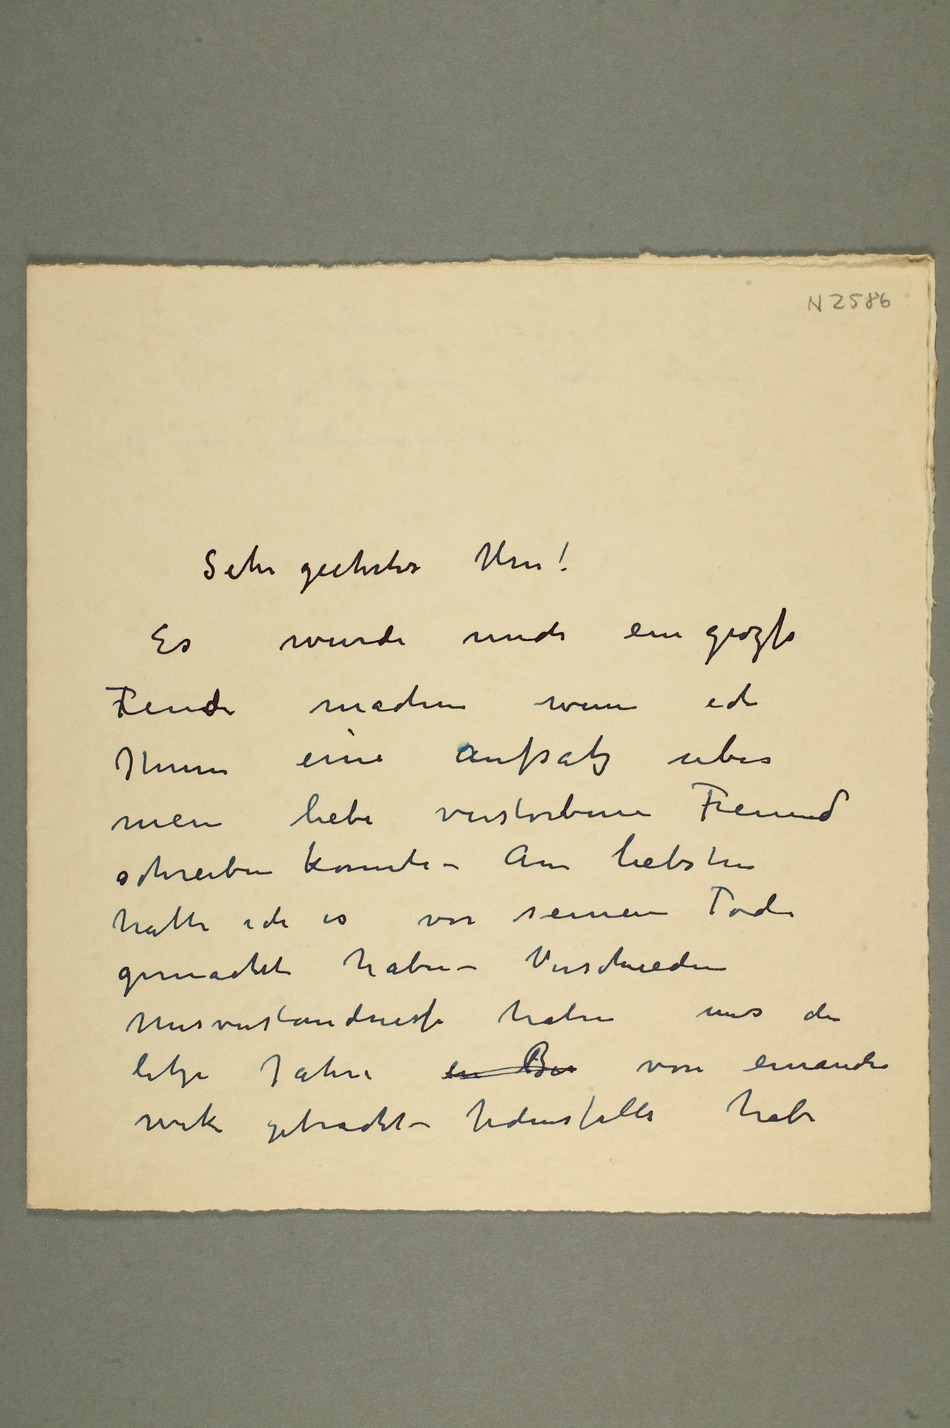 N 2586
Sehr geehrter Herr!
Es würde mich ein grozse
Feude machen wenn ich
Ihnen eine Aufsatz uber
mein liebe verstorbene Freund
schreiben konnte – Am liebsten
hatte ich es vor seinen Tode
gemacht haben – Verschieden
Misverstandnisse haben uns die
letze Jahre von einander
gebracht – habe